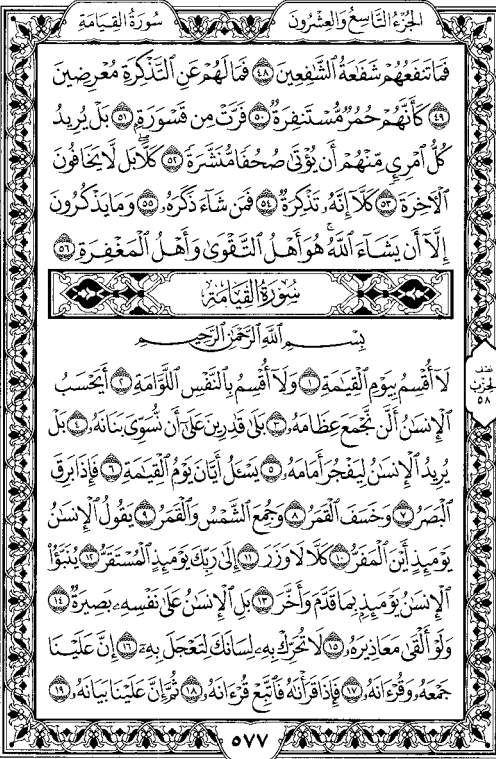 سُورَةُ القِيَامَةِ
الجُزْءُ التَّاسِعُ وَالعِشْرُونَ
فَمَا تَنفَعُهُمْ شَفَٰعَةُ ٱلشَّٰفِعِينَ ٤٨ فَمَا لَهُمْ عَنِ ٱلتَّذْكِرَةِ مُعْرِضِينَ
٤٩ كَأَنَّهُمْ حُمُرٌ مُّسْتَنفِرَةٌ ٥٠ فَرَّتْ مِن قَسْوَرَةٍ ٥١ بَلْ يُرِيدُ
كُلُّ ٱمْرِئٍ مِّنْهُمْ أَن يُؤْتَىٰ صُحُفًا مُّنَشَّرَةً ٥٢ كَلَّا ۖ بَل لَّا يَخَافُونَ
ٱلْآخِرَةَ ٥٣ كَلَّا إِنَّهُۥ تَذْكِرَةٌ ٥٤ فَمَن شَاءَ ذَكَرَهُۥ ٥٥ وَمَا يَذْكُرُونَ
إِلَّا أَن يَشَاءَ ٱللَّهُ ۚ هُوَ أَهْلُ ٱلتَّقْوَىٰ وَأَهْلُ ٱلْمَغْفِرَةِ ٥٦
سُورَةُ القِيَامَةِ
بِسْمِ ٱللَّهِ ٱلرَّحْمَٰنِ ٱلرَّحِيمِ
لَا أُقْسِمُ بِيَوْمِ ٱلْقِيَٰمَةِ ١ وَلَا أُقْسِمُ بِٱلنَّفْسِ ٱللَّوَّامَةِ ٢ أَيَحْسَبُ
ٱلْإِنسَٰنُ أَلَّن نَّجْمَعَ عِظَامَهُۥ ٣ بَلَىٰ قَٰدِرِينَ عَلَىٰ أَن نُّسَوِّيَ بَنَانَهُۥ ٤ بَلْ
يُرِيدُ ٱلْإِنسَٰنُ لِيَفْجُرَ أَمَامَهُۥ ٥ يَسْـَٔلُ أَيَّانَ يَوْمُ ٱلْقِيَٰمَةِ ٦ فَإِذَا بَرِقَ
ٱلْبَصَرُ ٧ وَخَسَفَ ٱلْقَمَرُ ٨ وَجُمِعَ ٱلشَّمْسُ وَٱلْقَمَرُ ٩ يَقُولُ ٱلْإِنسَٰنُ
يَوْمَئِذٍ أَيْنَ ٱلْمَفَرُّ ١٠ كَلَّا لَا وَزَرَ ١١ إِلَىٰ رَبِّكَ يَوْمَئِذٍ ٱلْمُسْتَقَرُّ ١٢ يُنَبَّؤُا۟
ٱلْإِنسَٰنُ يَوْمَئِذٍ بِمَا قَدَّمَ وَأَخَّرَ ١٣ بَلِ ٱلْإِنسَٰنُ عَلَىٰ نَفْسِهِۦ بَصِيرَةٌ ١٤
وَلَوْ أَلْقَىٰ مَعَاذِيرَهُۥ ١٥ لَا تُحَرِّكْ بِهِۦ لِسَانَكَ لِتَعْجَلَ بِهِۦ ١٦ إِنَّ عَلَيْنَا
جَمْعَهُۥ وَقُرْءَانَهُۥ ١٧ فَإِذَا قَرَأْنَٰهُ فَٱتَّبِعْ قُرْءَانَهُۥ ١٨ ثُمَّ إِنَّ عَلَيْنَا بَيَانَهُۥ ١٩
نصف
الحزب
٥٨
٥٧٧